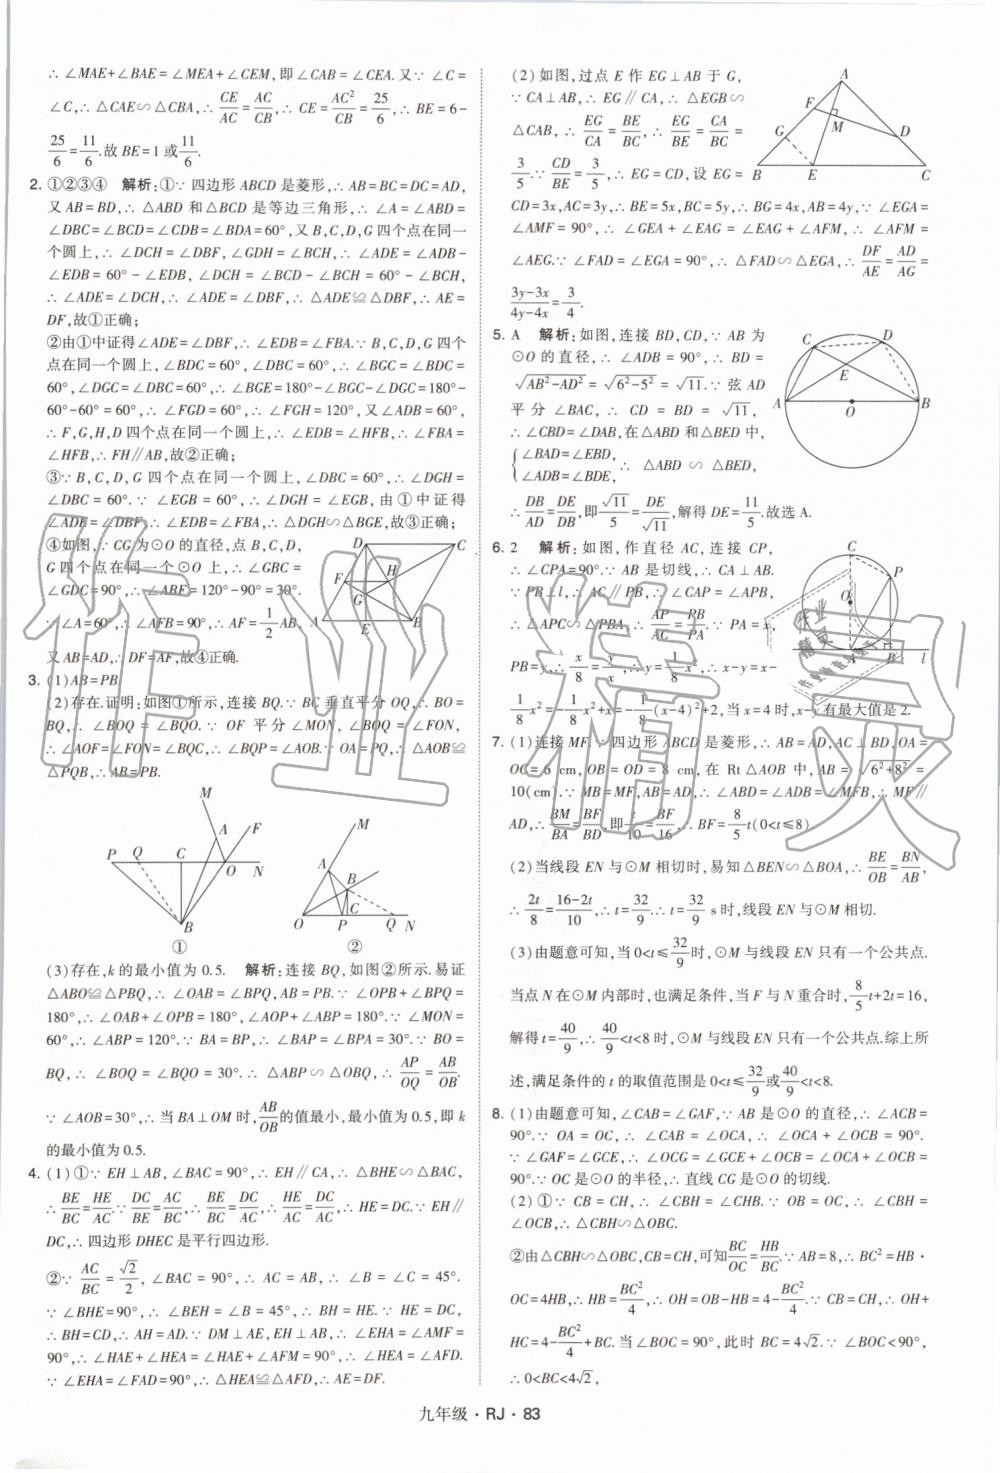 ∴ ∠MAE+∠BAE=∠MEA+∠CEM,即∠CAB=∠CEA.又∵ ∠C=
∠C,∴ △CAE∽△CBA,∴ CE/AC=AC/CB,∴ CE=AC²/CB=25/6,∴ BE=6-
25/6=11/6.故BE=1或11/6.
2. ①②③④ 解析:①∵ 四边形ABCD是菱形,∴ AB=BC=DC=AD,
又AB=BD,∴ △ABD和△BCD是等边三角形,∴ ∠A=∠ABD=
∠DBC=∠BCD=∠CDB=∠BDA=60°,又B,C,D,G四个点在同一
个圆上,∴ ∠DCH=∠DBF,∠GDH=∠BCH,∴ ∠ADE=∠ADB-
∠EDB=60°-∠EDB,∠DCH=∠BCD-∠BCH=60°-∠BCH,
∴ ∠ADE=∠DCH,∴ ∠ADE=∠DBF,∴ △ADE≌△DBF,∴ AE=
DF,故①正确;
②由①中证得∠ADE=∠DBF,∴ ∠EDB=∠FBA.∵ B,C,D,G四个
点在同一个圆上,∠BDC=60°,∠DBC=60°,∴ ∠BGC=∠BDC=
60°,∠DGC=∠DBC=60°,∴ ∠BGE=180°-∠BGC-∠DGC=180°-
60°-60°=60°,∴ ∠FGD=60°,∴ ∠FGH=120°,又∠ADB=60°,
∴ F,G,H,D四个点在同一个圆上,∴ ∠EDB=∠HFB,∴ ∠FBA=
∠HFB,∴ FH∥AB,故②正确;
③∵ B,C,D,G四个点在同一个圆上,∠DBC=60°,∴ ∠DGH=
∠DBC=60°.∵ ∠EGB=60°,∴ ∠DGH=∠EGB,由①中证得
∠ADE=∠DBF,∴ ∠EDB=∠FBA,∴ △DGH∽△BGE,故③正确;
④如图,∵ CG为⊙O的直径,点B,C,D,
G四个点在同一个⊙O上,∴ ∠GBC=
∠GDC=90°,∴ ∠ABF=120°-90°=30°.
∵ ∠A=60°,∴ ∠AFB=90°,∴ AF=1/2AB,
又AB=AD,∴ DF=AF,故④正确.
D C F H G A E B
3. (1)AB=PB.
(2)存在.证明:如图①所示,连接BQ.∵ BC垂直平分OQ,∴ BO=
BQ,∴ ∠BOQ=∠BQO.∵ OF平分∠MON,∠BOQ=∠FON,
∴ ∠AOF=∠FON=∠BQC,∴ ∠BQP=∠AOB.∵ OA=PQ,∴ △AOB≌
△PQB,∴ AB=PB.
M A F P Q C O N B ①
M A B O P C Q N ②
(3)存在,k的最小值为0.5. 解析:连接BQ,如图②所示.易证
△ABO≌△PBQ,∴ ∠OAB=∠BPQ,AB=PB.∵ ∠OPB+∠BPQ=
180°,∴ ∠OAB+∠OPB=180°,∠AOP+∠ABP=180°.∵ ∠MON=
60°,∴ ∠ABP=120°.∵ BA=BP,∴ ∠BAP=∠BPA=30°.∵ BO=
BQ,∴ ∠BOQ=∠BQO=30°.∴ △ABP∽△OBQ,∴ AP/OQ=AB/OB.
∵ ∠AOB=30°,∴ 当BA⊥OM时,AB/OB的值最小,最小值为0.5,即k
的最小值为0.5.
4. (1)①∵ EH⊥AB,∠BAC=90°,∴ EH∥CA,∴ △BHE∽△BAC,
∴ BE/BC=HE/AC.∵ DC/BE=AC/BC,∴ BE/BC=DC/AC,∴ HE/AC=DC/AC,∴ HE=DC.∵ EH∥
DC,∴ 四边形DHEC是平行四边形.
②∵ AC/BC=√2/2,∠BAC=90°,∴ AC=AB,∴ ∠B=∠C=45°.
∵ ∠BHE=90°,∴ ∠BEH=∠B=45°,∴ BH=HE.∵ HE=DC,
∴ BH=CD,∴ AH=AD.∵ DM⊥AE,EH⊥AB,∴ ∠EHA=∠AMF=
90°,∴ ∠HAE+∠HEA=∠HAE+∠AFM=90°,∴ ∠HEA=∠AFD.
∵ ∠EHA=∠FAD=90°,∴ △HEA≌△AFD,∴ AE=DF.
(2)如图,过点E作EG⊥AB于G,
∵ CA⊥AB,∴ EG∥CA,∴ △EGB∽
△CAB,∴ EG/CA=BE/BC,∴ EG/BE=CA/BC=
3/5.∵ CD/BE=3/5,∴ EG=CD,设EG=
A F M G D B E C
CD=3x,AC=3y,∴ BE=5x,BC=5y,∴ BG=4x,AB=4y,∵ ∠EGA=
∠AMF=90°,∴ ∠GEA+∠EAG=∠EAG+∠AFM,∴ ∠AFM=
∠AEG.∵ ∠FAD=∠EGA=90°,∴ △FAD∽△EGA,∴ DF/AE=AD/AG=
3y-3x/4y-4x=3/4.
5. A 解析:如图,连接BD,CD,∵ AB为
⊙O的直径,∴ ∠ADB=90°,∴ BD=
√AB²-AD²=√6²-5²=√11.∵ 弦AD
平分∠BAC,∴ CD=BD=√11,
∴ ∠CBD=∠DAB,在△ABD和△BED中,
{∠BAD=∠EBD,
∠ADB=∠BDE, ∴ △ABD∽△BED,
∴ DB/AD=DE/DB,即√11/5=DE/√11,解得DE=11/5.故选A.
C D E A O B
6. 2 解析:如图,作直径AC,连接CP,
∴ ∠CPA=90°.∵ AB是切线,∴ CA⊥AB.
∵ PB⊥l,∴ AC∥PB,∴ ∠CAP=∠APB,
∴ △APC∽△PBA,∴ AP/AC=PB/PA.∵ PA=x,
PB=y,∴ x/8=y/x,∴ y=1/8x²,∴ x-y=x-
1/8x²=-1/8x²+x=-1/8(x-4)²+2,当x=4时,x-y有最大值是2.
C P O A B l
7. (1)连接MF.∵ 四边形ABCD是菱形,∴ AB=AD,AC⊥BD,OA=
OC=6 cm,OB=OD=8 cm,在Rt△AOB中,AB=√6²+8²=
10(cm).∵ MB=MF,AB=AD,∴ ∠ABD=∠ADB=∠MFB,∴ MF∥
AD,∴ BM/BA=BF/BD,即t/10=BF/16,∴ BF=8/5t(0<t≤8).
(2)当线段EN与⊙M相切时,易知△BEN∽△BOA,∴ BE/OB=BN/AB,
∴ 2t/8=16-2t/10,∴ t=32/9.∴ t=32/9 s时,线段EN与⊙M相切.
(3)由题意可知,当0<t≤32/9时,⊙M与线段EN只有一个公共点.
当点N在⊙M内部时,也满足条件,当F与N重合时,8/5t+2t=16,
解得t=40/9,∴ 40/9<t<8时,⊙M与线段EN只有一个公共点.综上所
述,满足条件的t的取值范围是0<t≤32/9或40/9<t<8.
8. (1)由题意可知,∠CAB=∠GAF,∵ AB是⊙O的直径,∴ ∠ACB=
90°.∵ OA=OC,∴ ∠CAB=∠OCA,∴ ∠OCA+∠OCB=90°.
∵ ∠GAF=∠GCE,∴ ∠OCG=∠GCE+∠OCB=∠OCA+∠OCB=
90°.∵ OC是⊙O的半径,∴ 直线CG是⊙O的切线.
(2)①∵ CB=CH,∴ ∠CBH=∠CHB.∵ OB=OC,∴ ∠CBH=
∠OCB,∴ △CBH∽△OBC.
②由△CBH∽△OBC,CB=CH,可知BC/OC=HB/BC.∵ AB=8,∴ BC²=HB·
OC=4HB,∴ HB=BC²/4,∴ OH=OB-HB=4-BC²/4.∵ CB=CH,∴ OH+
HC=4-BC²/4+BC.当∠BOC=90°,此时BC=4√2.∵ ∠BOC<90°,
∴ 0<BC<4√2,
九年级·RJ·83
作业精灵